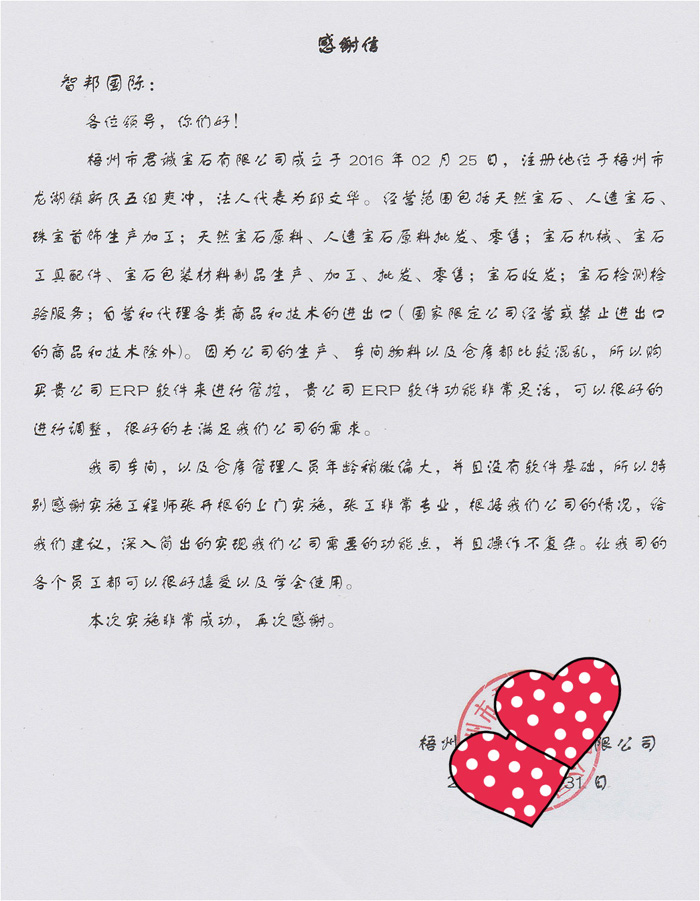 感谢信
智邦国际：
各位领导，你们好！
梧州市君诚宝石有限公司成立于2016年02月25日，注册地位于梧州市
龙湖镇新民五组爽冲，法人代表为邱文华。经营范围包括天然宝石、人造宝石、
珠宝首饰生产加工；天然宝石原料、人造宝石原料批发、零售；宝石机械、宝石
工具配件、宝石包装材料制品生产、加工、批发、零售；宝石收发；宝石检测检
验服务；自营和代理各类商品和技术的进出口（国家限定公司经营或禁止进出口
的商品和技术除外）。因为公司的生产、车间物料以及仓库都比较混乱，所以购
买贵公司ERP软件来进行管控，贵公司ERP软件功能非常灵活，可以很好的
进行调整，很好的去满足我们公司的需求。
我司车间，以及仓库管理人员年龄稍微偏大，并且没有软件基础，所以特
别感谢实施工程师张开根的上门实施，张工非常专业，根据我们公司的情况，给
我们建议，深入简出的实现我们公司需要的功能点，并且操作不复杂。让我司的
各个员工都可以很好接受以及学会使用。
本次实施非常成功，再次感谢。
州市
梧州 限公司
2 31日